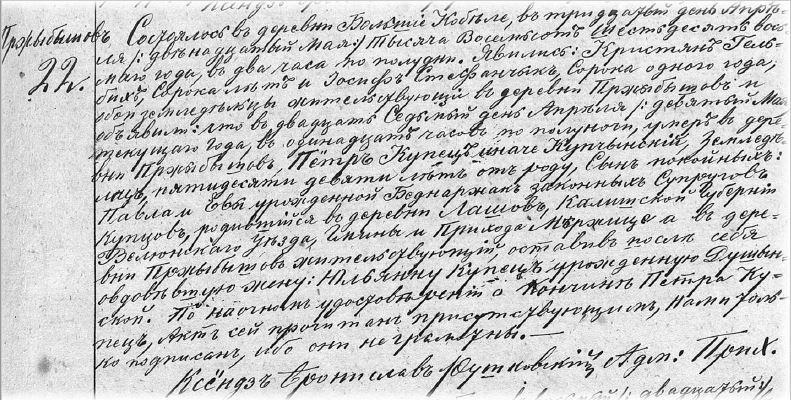 Пржыбышовъ
22.
Состоялось въ деревни Больши Кобѣле, въ тридцатый день Апрѣ-
ля /: двѣнадцатый Мая:/ Тысяча Восемьсотъ Шестьдесятъ вось-
маго года, въ два часа по полудни. Явились: Кристянъ Гель-
бихъ, Сорока лѣтъ и Іосифъ Стефанчыкъ, Сорока одного года,
оба земледѣльцы жительствующіи въ деревни Пржыбышовъ и
объявили: что въ двадцать Седьмый день Апрѣля /: девятый Мая
текущаго года, въ одинадцать часовъ по полуночи, умеръ въ дере-
вни Пржыбышовъ, Петръ Купецъ иначе Купчынскій, Земледѣ-
лецъ, пятидесяти девяти лѣтъ отъ роду, Сынъ покойныхъ:
Павла и Евы урожденной Беднаржакъ законныхъ Супруговъ
Купцовъ, родившійся въ деревни Лашовъ, Калишской Губерніи
Велюнскаго Уѣзда, Гмины и Прихода Мѣржице а въ дере-
вни Пржыбышовъ жительствующій, оставивъ послѣ себя
овдовѣвшую жену: Юльянну Купецъ урожденную Душын-
ской. По наочномъ удостовѣреніи о Кончинѣ Петра Ку-
пецъ, Актъ сей прочитанъ присутствующимъ, Нами толь-
ко подписанъ, ибо они неграмотны. —
Ксёндзъ Брониславъ Юшковскій Адм: Прих.
двадцатый